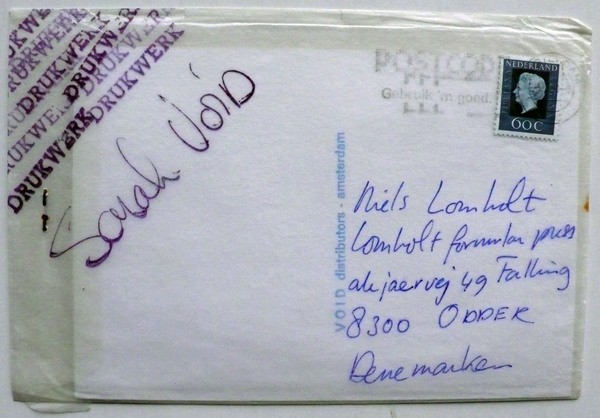 DRUKWERK DRUKWERK
DRUKWERK DRUKWERK
DRUKWERK DRUKWERK
DRUKWERK
Sarah VOID
POSTCODE
Gebruik 'm goed.
NEDERLAND
60C
VOID distributors - amsterdam
Niels Lomholt
Lomholt formular press
akjaervej 49 Falling
8300 ODDER
Denemarken